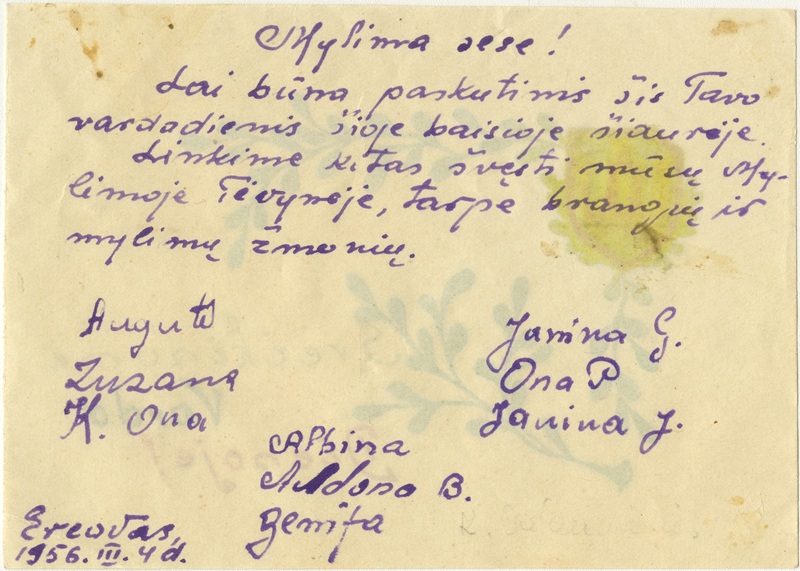 Mylima sese!
Lai būna paskutinis šis Tavo
vardadienis šioje baisioje šiaurėje.
Linkime kitas švęsti mūsų My-
limoje Tėvynėje, tarpe brangių ir
mylimų žmonių.
Augutė
Zuzana
K. Ona
Janina G.
Ona P
Janina J.
Albina
Aldona B.
Genifa
Ereovas,
1956. III. 4 d.